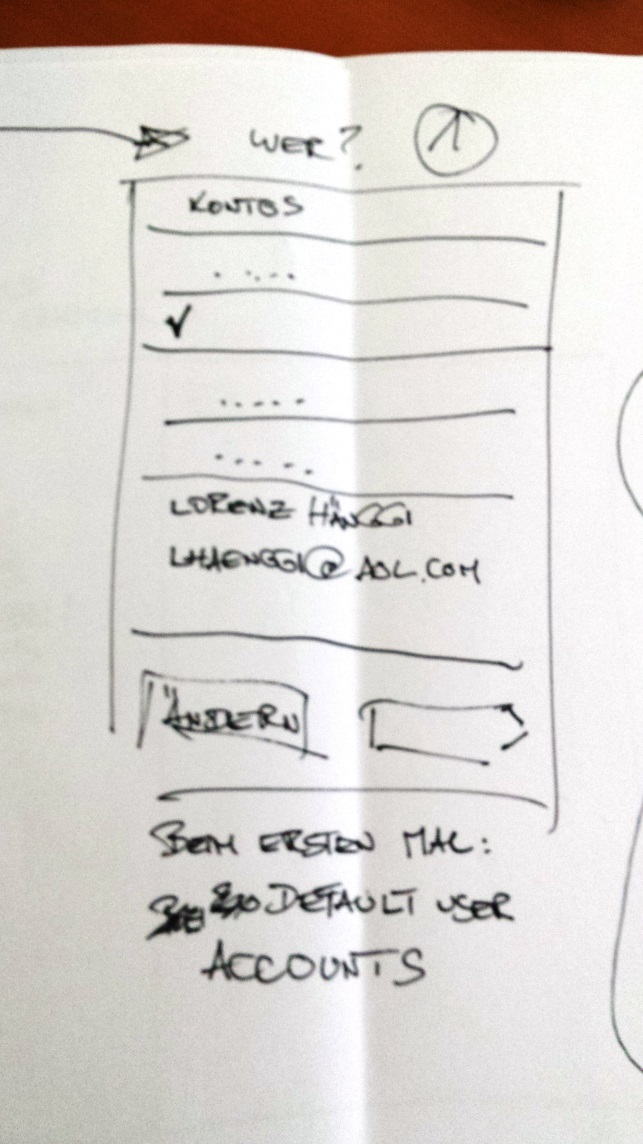 WER? 1
KONTOS
. . . . .
✓
. . . . .
. . . . .
LORENZ HÄNGGI
LHAENGGI@AOL.COM
ÄNDERN
BEIM ERSTEN MAL:
DEFAULT USER
ACCOUNTS